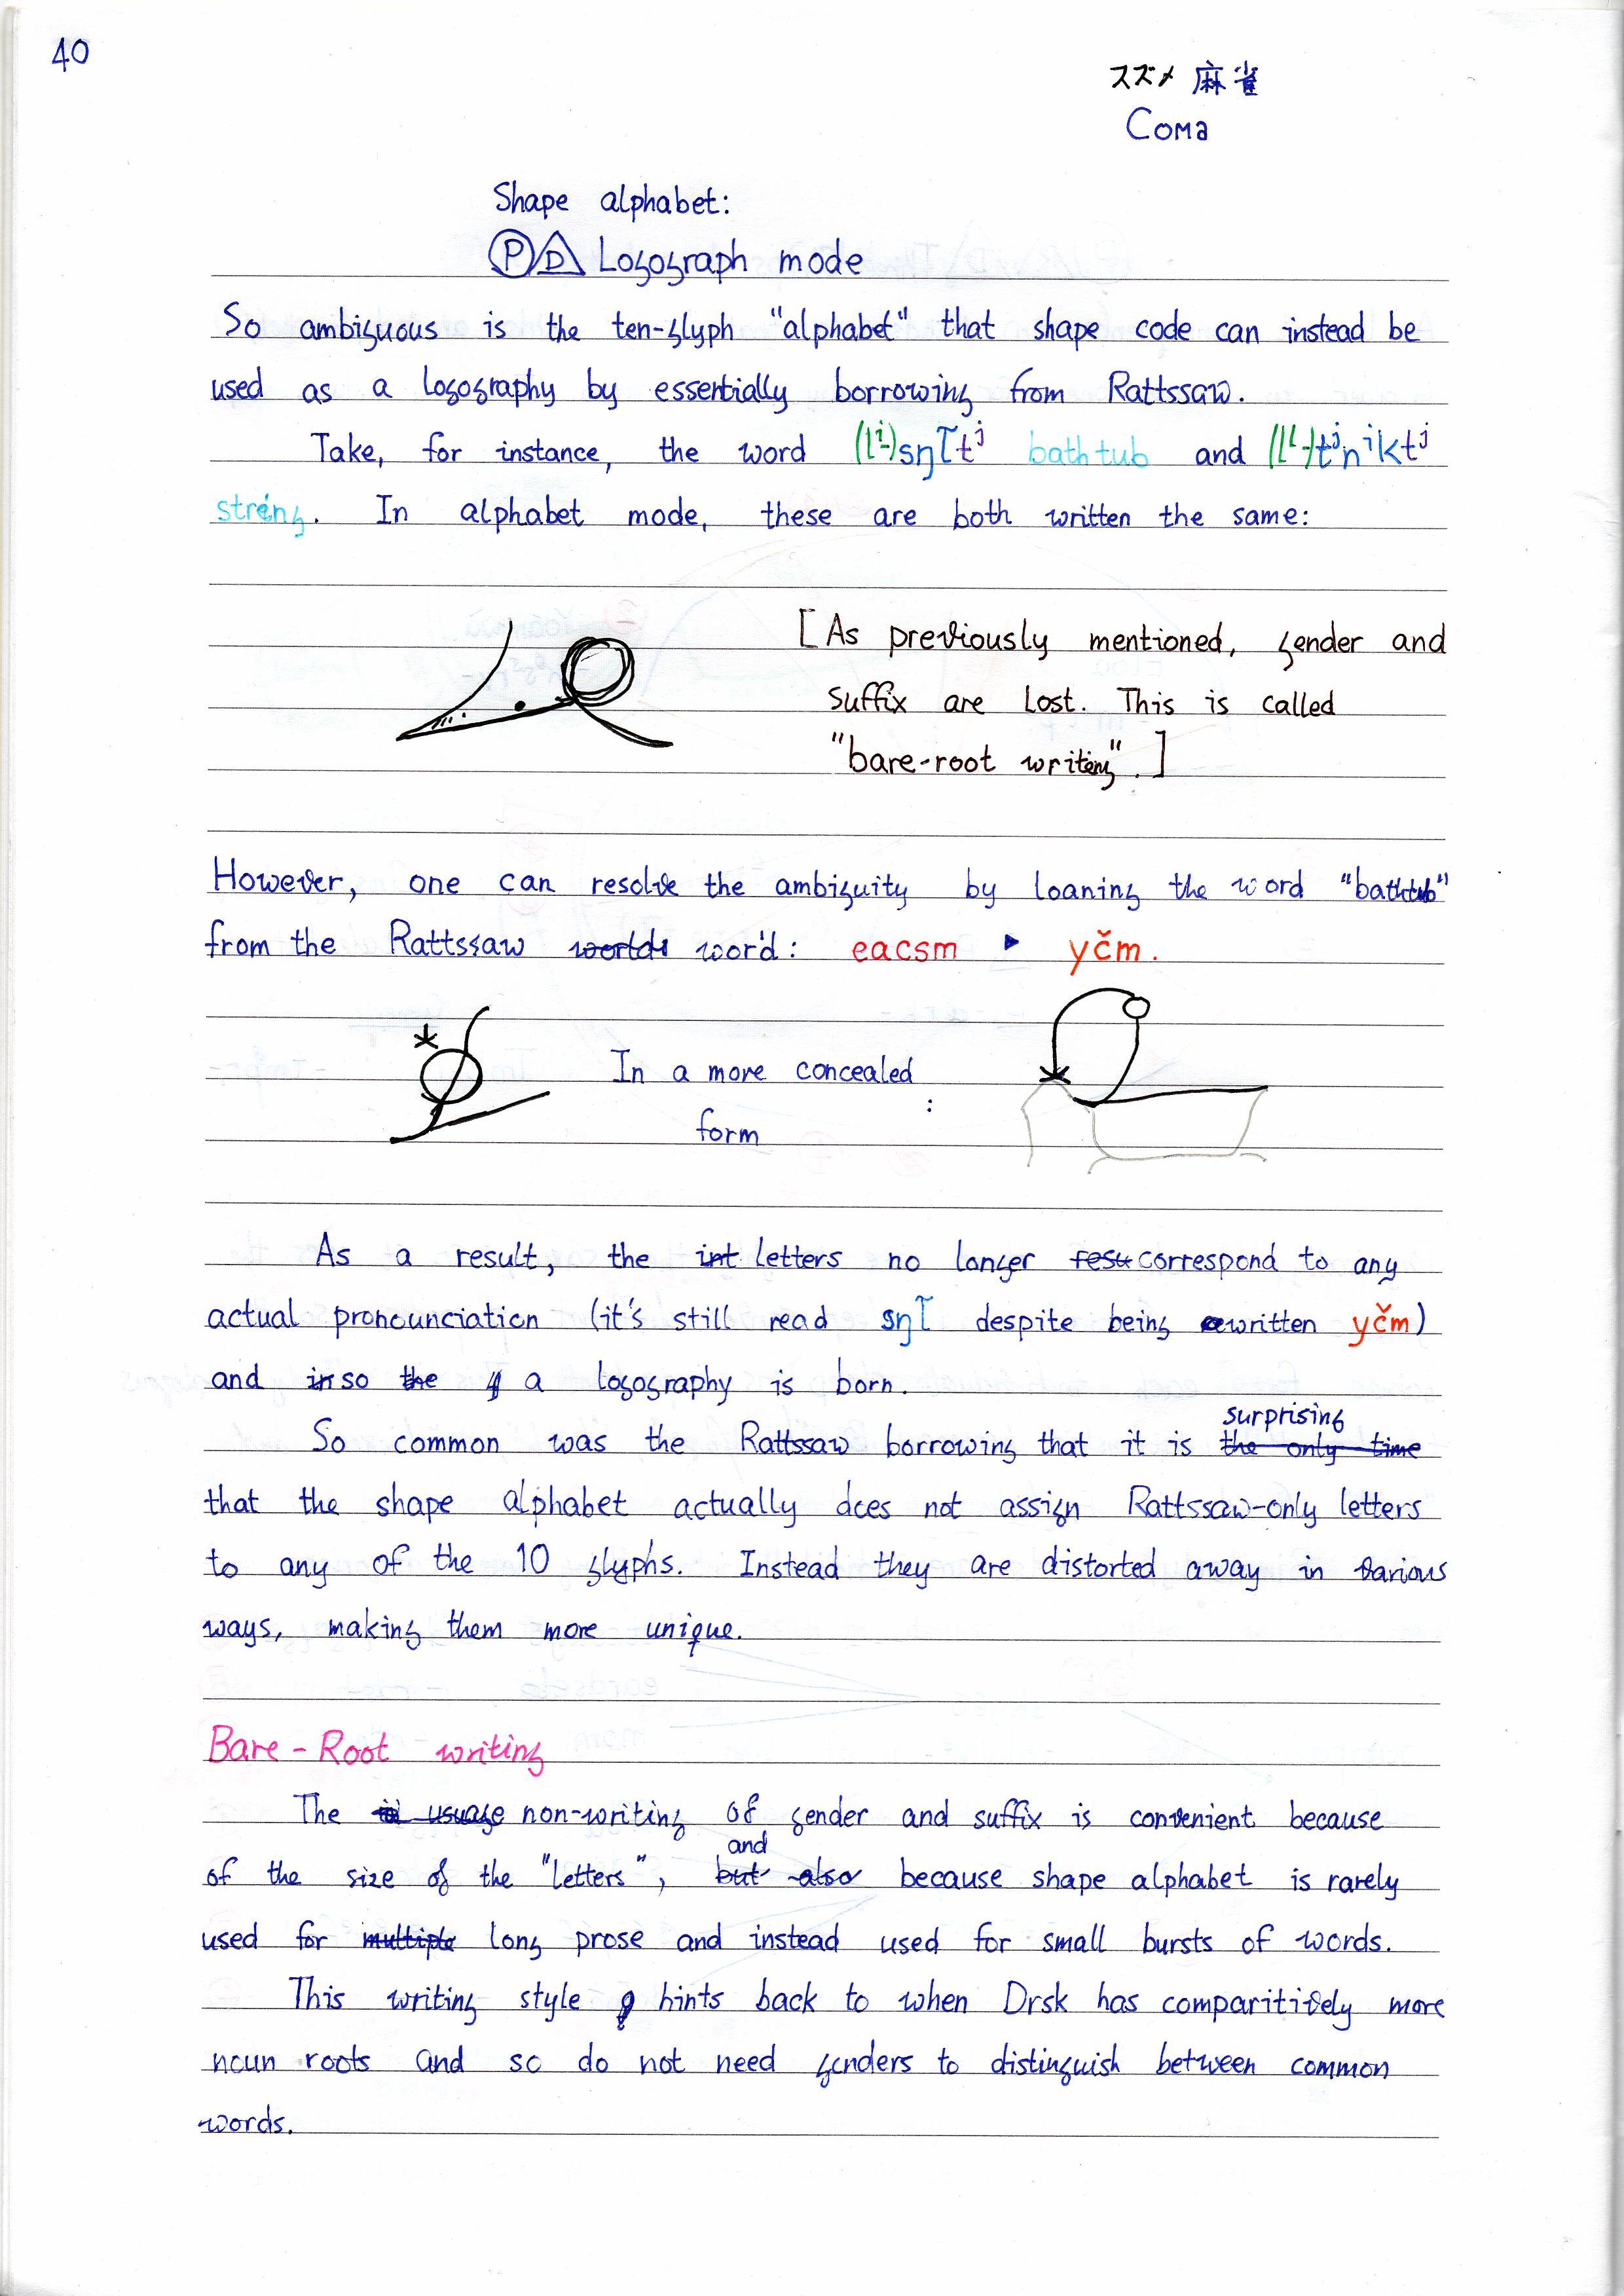 40
スズメ 麻雀
Coma
Shape alphabet:
P D Logograph mode
So ambiguous is the ten-glyph "alphabet" that shape code can instead be
used as a logography by essentially borrowing from Rattssaw.
Take, for instance, the word bathtub and
string. In alphabet mode, these are both written the same:
[As previously mentioned, gender and
suffix are lost. This is called
"bare-root writing".]
However, one can resolve the ambiguity by loaning the word "bathtub"
from the Rattssaw word: eacsm ▸ yčm.
In a more concealed
form :
As a result, the letters no longer correspond to any
actual pronounciation (it's still read despite being written yčm)
and so a logography is born.
So common was the Rattssaw borrowing that it is surprising
that the shape alphabet actually does not assign Rattssaw-only letters
to any of the 10 glyphs. Instead they are distorted away in various
ways, making them more unique.
Bare-Root writing
The non-writing of gender and suffix is convenient because
of the size of the "letters", and because shape alphabet is rarely
used for long prose and instead used for small bursts of words.
This writing style hints back to when Drsk has comparitively more
noun roots and so do not need genders to distinguish between common
words.